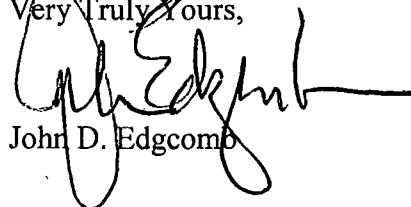 Very Truly Yours,
John D. Edgcomb
John D. Edgcomb